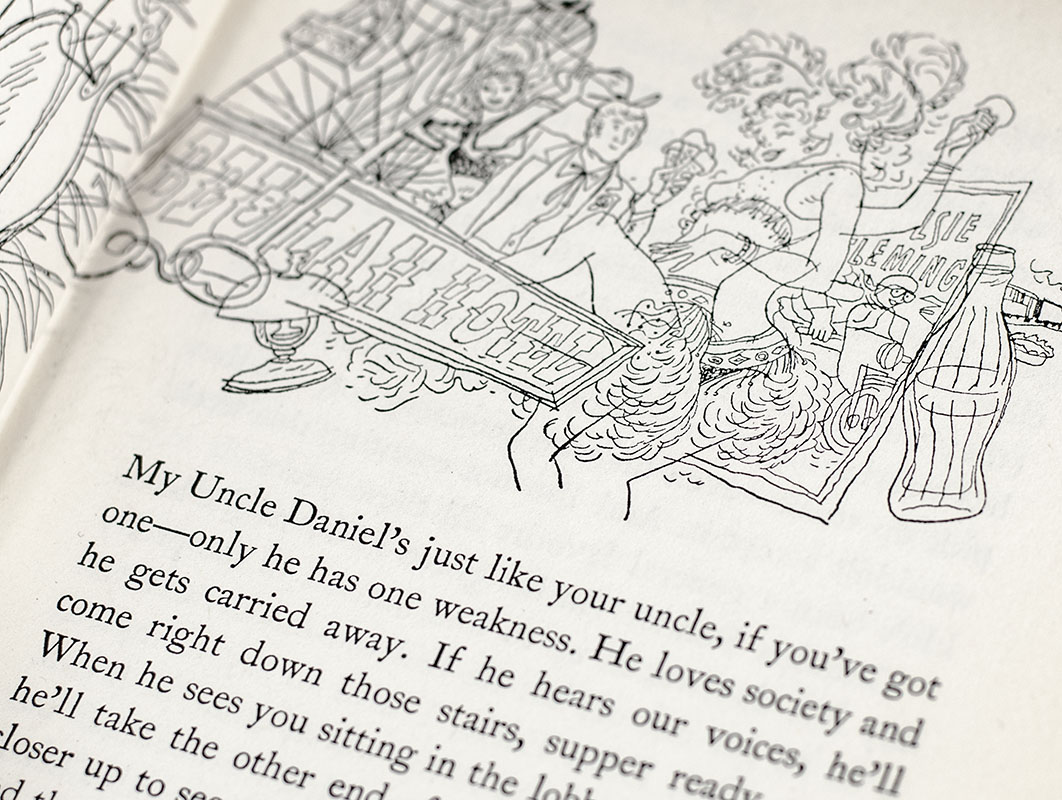 BEULAH HOTEL
LSIE
LEMING
My Uncle Daniel's just like your uncle, if you've got
one—only he has one weakness. He loves society and
he gets carried away. If he hears our voices, he'll
come right down those stairs, supper ready
When he sees you sitting in the
he'll take the other end
closer up to